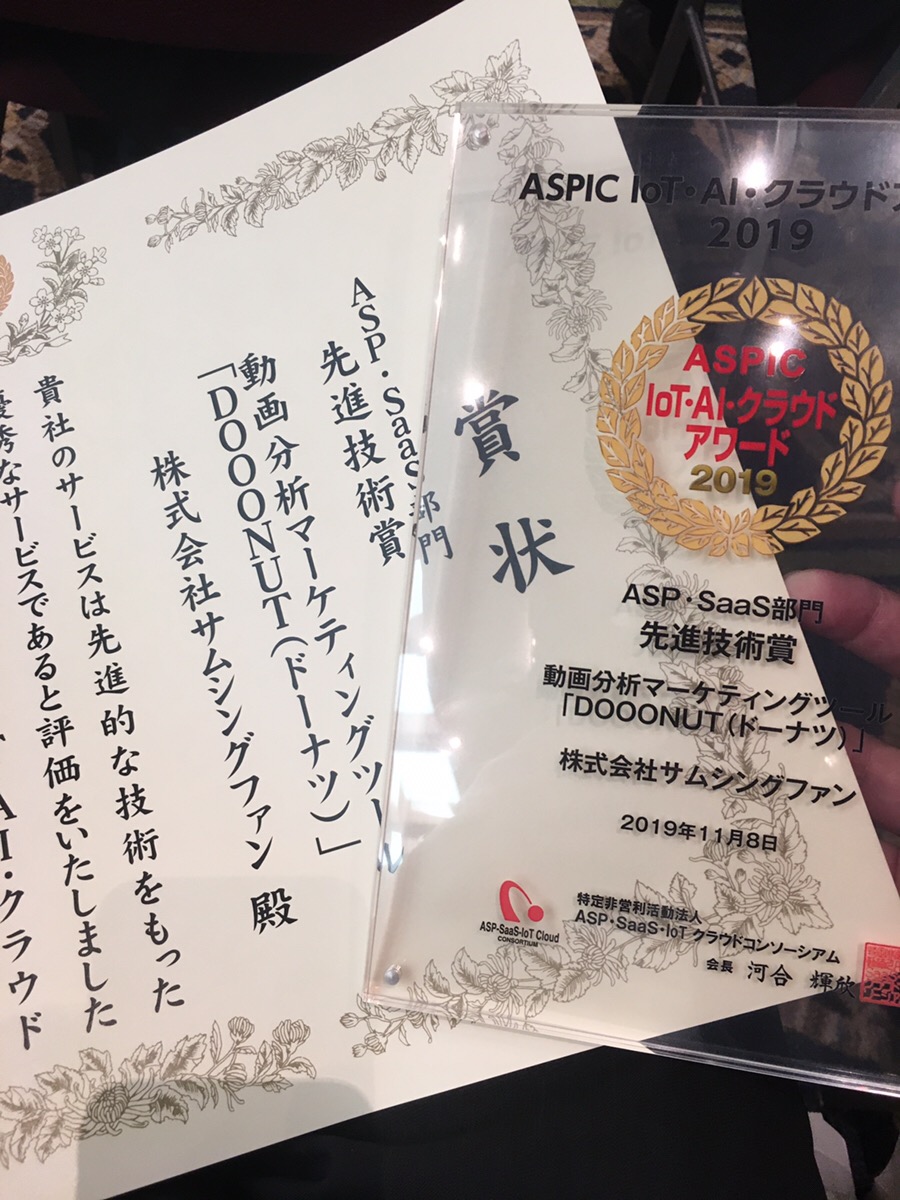 賞状
ASP・SaaS部門
先進技術賞
動画分析マーケティングツール
「DOOONUT(ドーナツ)」
株式会社サムシングファン 殿
貴社のサービスは先進的な技術をもった
優秀なサービスであると評価をいたしました
AI・クラウド
ASPIC IoT・AI・クラウド
2019
ASPIC
IoT・AI・クラウド
アワード
2019
ASP・SaaS部門
先進技術賞
動画分析マーケティングツール
「DOOONUT(ドーナツ)」
株式会社サムシングファン
2019年11月8日
ASP-SaaS-IoT Cloud
CONSORTIUM
特定非営利活動法人
ASP・SaaS・IoT クラウドコンソーシアム
会長 河合 輝欣